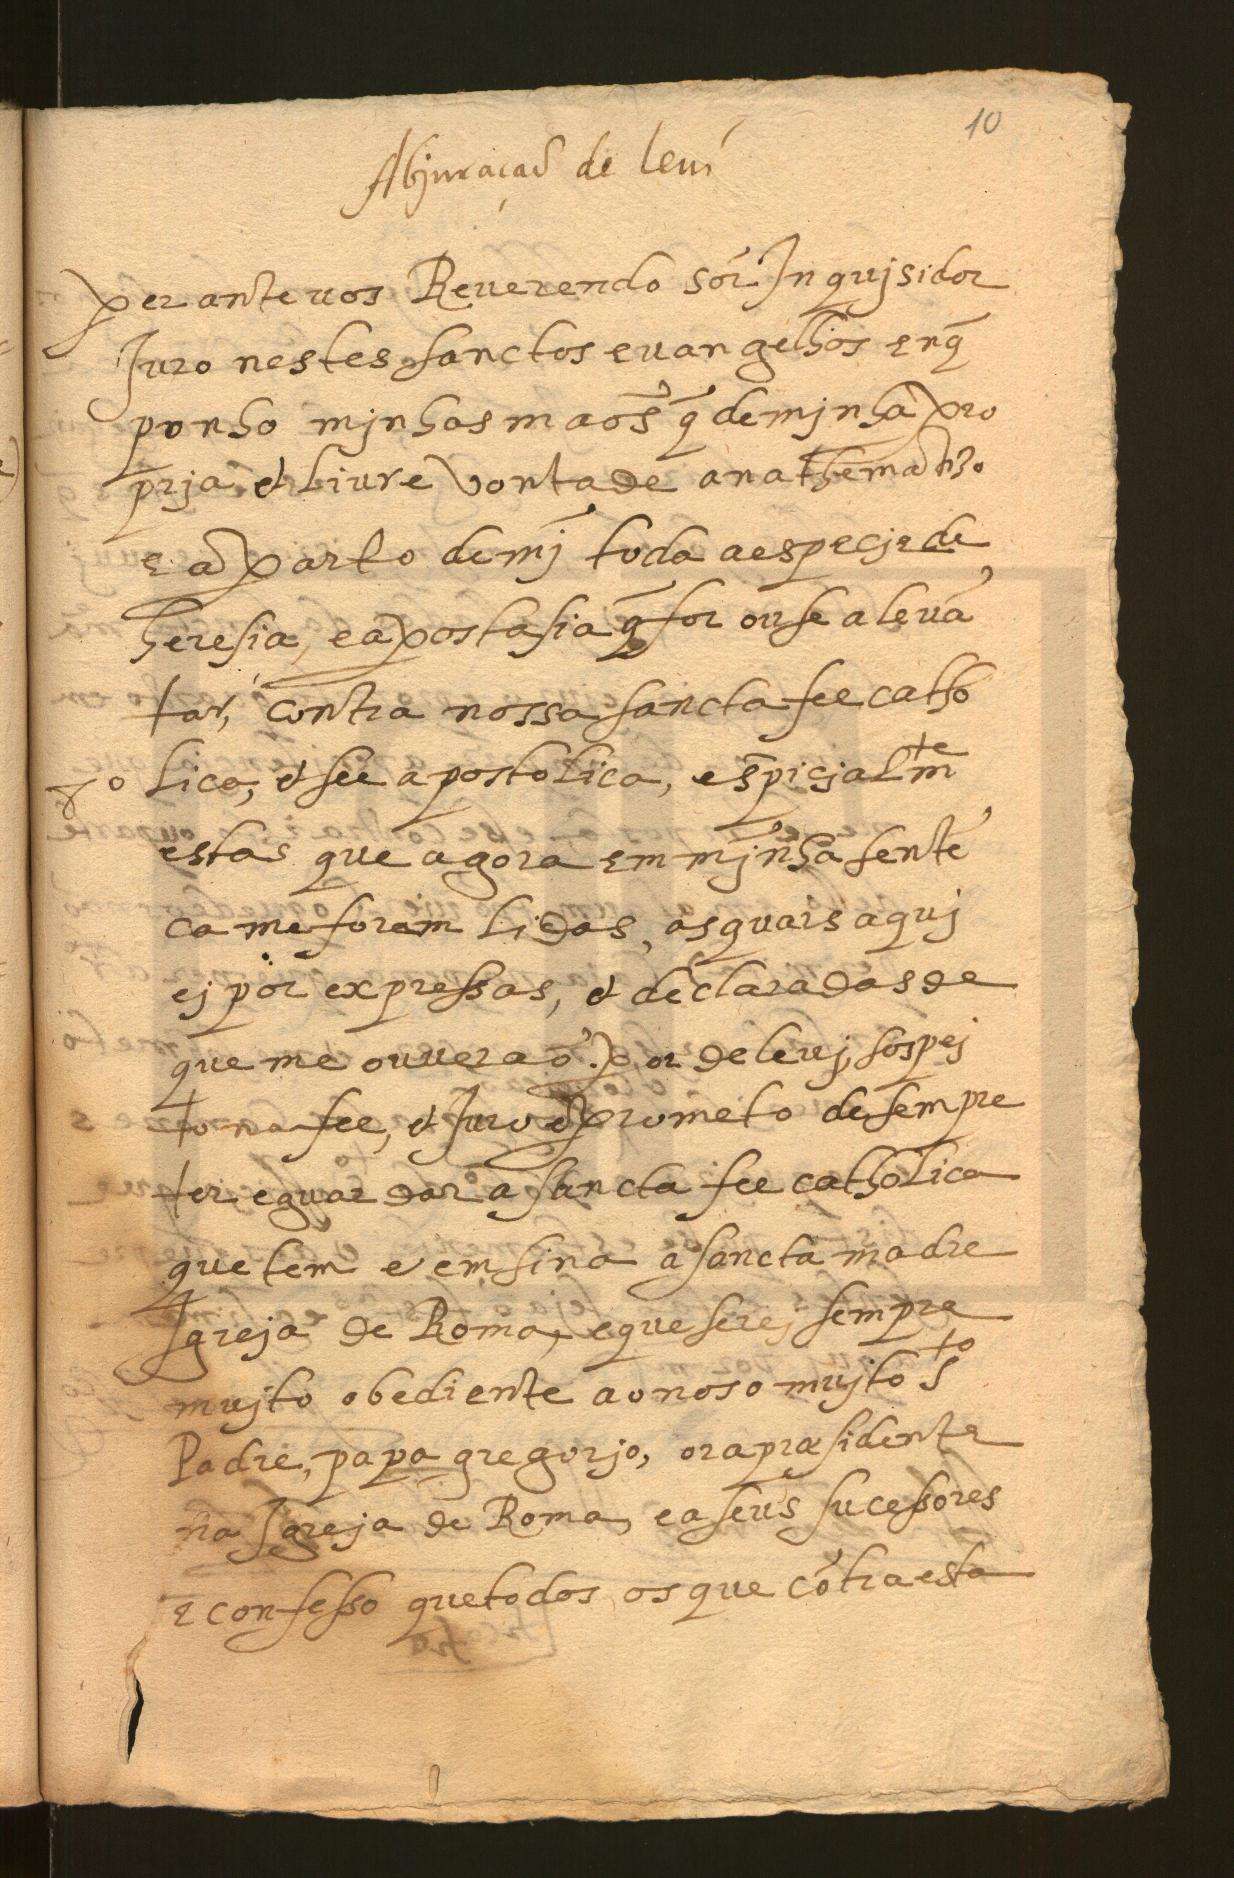 10
Abjuração de leui
perante uos Reuerendo Sõr Inqujsidor
Juro nestes sanctos euangelhos en q̃
ponho mjnhas maõs q̃ de mjnha pro
prja & liure vontade anathematizo
e aparto de mj̃ toda a especje de
heresia, e apostasia q̃ for ou se aleuã
tar, contra nossa sancta fee catho
lica, & see apostolica, espicjalmte
estas que agora em mjnha sentẽ
ca me foram lidas, as quais aquj
ej por expressas, & declaradas de
que me ouueraõ por de leuj sospej
to na fee, & Juro & prometo de sempre
ter e guardar a sancta fee catholica
que tem e emsina a sancta madre
Igreja de Roma, e que serej sempre
mujto obediente ao noso mujto Sto
Padre, papa gregorjo, ora præsidente
na Igreja de Roma, e a seus sucessores
e confesso que todos os que cõtra esta